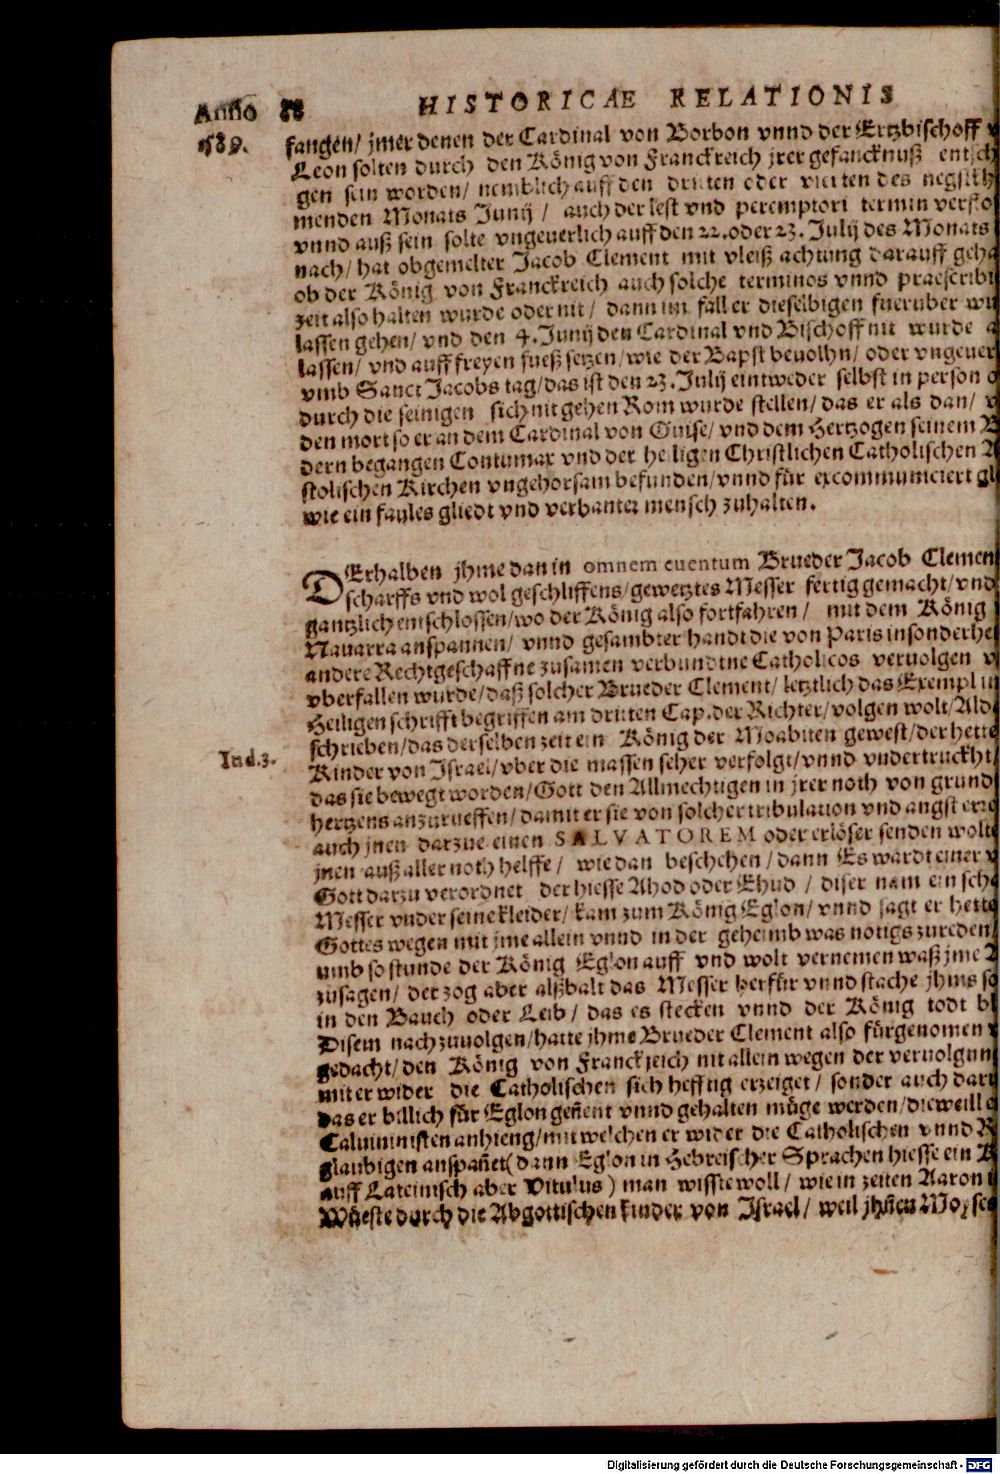 Anno 88 HISTORICAE RELATIONIS
1589.
fangen/ jmer denen der Cardinal von Borbon vnnd der Ertzbischoff
Leon solten durch den König von Franckreich jrer gefancknuß
gen sein worden/ nemblich auff den dritten oder vierten des
menden Monats Junij / auch der lest vnd peremptori termin
vnnd auß sein solte vngeuerlich auff den 22. oder 23. Julij des Monats
nach/ hat obgemelter Jacob Clement mit vleiß achtung darauff
ob der König von Franckreich auch solche terminos vnnd
zeit also halten wurde oder nit / dann im fall er dieselbigen fueruber
lassen gehen/ vnd den 4. Junij den Cardinal vnd Bischoff nit wurde
lassen/ vnd auff freyen fueß setzen/ wie der Bapst beuolhn/ oder
vmb Sanct Jacobs tag/ das ist den 23. Julij eintweder selbst in person
durch die seinigen sich nit gehen Rom wurde stellen/ das er als dan/
den mort so er an dem Cardinal von Guise/ vnd dem Hertzogen seinem
dern begangen Contumax vnd der heiligen Christlichen Catholischen
stolischen Kirchen vngehorsam befunden/ vnnd für excommuniciert
wie ein faules gliedt vnd verbanter mensch zuhalten.
DErhalben jhme dan in omnem euentum Brueder Jacob Clemen
scharffs vnd wol geschliffens/ gewetztes Messer fertig gemacht/ vnd
gantzlich entschlossen/ wo der König also fortfahren / mit dem König
Nauarra anspannen/ vnnd gesambter handt die von Paris
andere Rechtgeschaffne zusamen verbundtne Catholicos veruolgen
vberfallen wurde/ daß solcher Brueder Clement/ letztlich das Exempl
Heiligen schrifft begriffen am dritten Cap. der Richter/ volgen wolt/
schrieben/ das derselben zeit ein König der Moabiten gewest/ der hette
Iud.3.
Kinder von Israel/ vber die massen seher verfolgt/ vnnd vndertruckht/
das sie bewegt worden/ Gott den Allmechtigen in jrer noth von grund
hertzens anzurueffen/ damit er sie von solcher tribulation vnd angst
auch jnen darzue einen SALVATOREM oder erlöser senden wolte
jnen auß aller noth helffe / wie dan beschehen / dann Es wardt einer
Gott darzu verordnet der hiesse Ahod oder Ehud / diser nam ein
Messer vnder seine kleider/ kam zum König Eglon/ vnnd sagt er hette
Gottes wegen mit jme allein vnnd in der geheimb was notigs zureden/
umb so stunde der König Eglon auff vnd wolt vernemen waß jme
zusagen/ der zog aber alßbalt das Messer herfür vnnd stache jhms so
in den Bauch oder Leib / das es stecken vnnd der König todt
Disem nachzuuolgen/ hatte jhme Brueder Clement also fürgenomen
gedacht/ den König von Franckreich nit allein wegen der
mit er wider die Catholischen sich hefftig erzeiget / sonder auch
das er billich für Eglon geñent vnnd gehalten müge werden/ dieweill
Caluininisten anhieng/ mit welchen er wider die Catholischen vnnd
glaubigen anspañet( dann Eglon in Hebreischer Sprachen hiesse ein
auff Lateinisch aber Vitulus ) man wisste woll / wie in zeiten Aaron
Wüeste durch die Abgottischen kinder von Israel/ weil jhñen
Digitalisierung gefördert durch die Deutsche Forschungsgemeinschaft - DFG